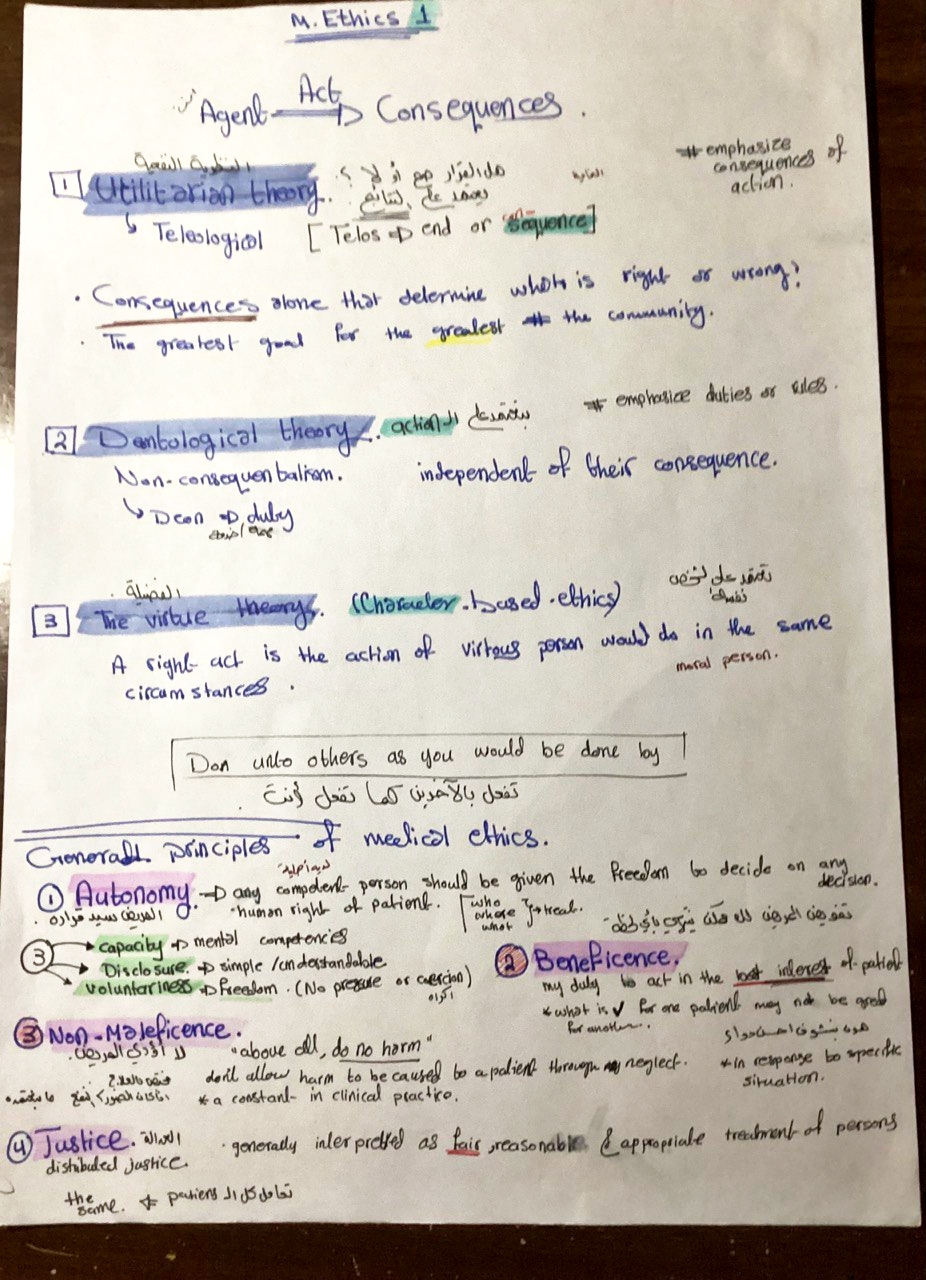 M. Ethics 1
Agent Act ⇒ Consequences.
النظرية النفعية
1 Utilitarian theory. هل القرار صح أو لا ؟ يعتمد على النتائج
# emphasize consequences of action.
↳ Teleological [Telos ⇒ end or con-sequence]
• Consequences alone that determine what is right or wrong?
• The greatest goal for the greatest # the community.
2 Dentological theory. بتعتمد على الـ action # emphasize duties or rules.
Non-consequentalism. independent of their consequence.
↳ Deon ⇒ duty
الفضيلة
3 The virtue theory. (Character-based-ethics) تعتمد على الشخص نفسه
A right act is the action of virtous person would do in the same
moral person.
circumstances.
Don unto others as you would be done by
تفعل بالآخرين كما تفعل أنت
Generall principles of medical ethics.
① Autonomy → any competent person should be given the freedom to decide on any decision.
المريض سيد قراره. "human right of patient. [who where what } → treat.
3 → capacity → mental competencies
→ Disclosure. → simple/understandable
→ voluntariness ⇒ freedom. (No pressure or coercion)
اكراه
② Beneficence.
my duty to act in the best interest of patient
* what is ✓ for one patient may not be good for another.
* in response to specific situation.
③ Non-Maleficence.
لا أؤذي المريض. "above all, do no harm"
don't allow harm to be caused to a patient through neglect.
* a constant in clinical practice.
④ Justice. العدالة • generally interpretted as fair, reasonable & appropriate treatment of persons
distibuted justice.
تعامل كل الـ patiens the same.